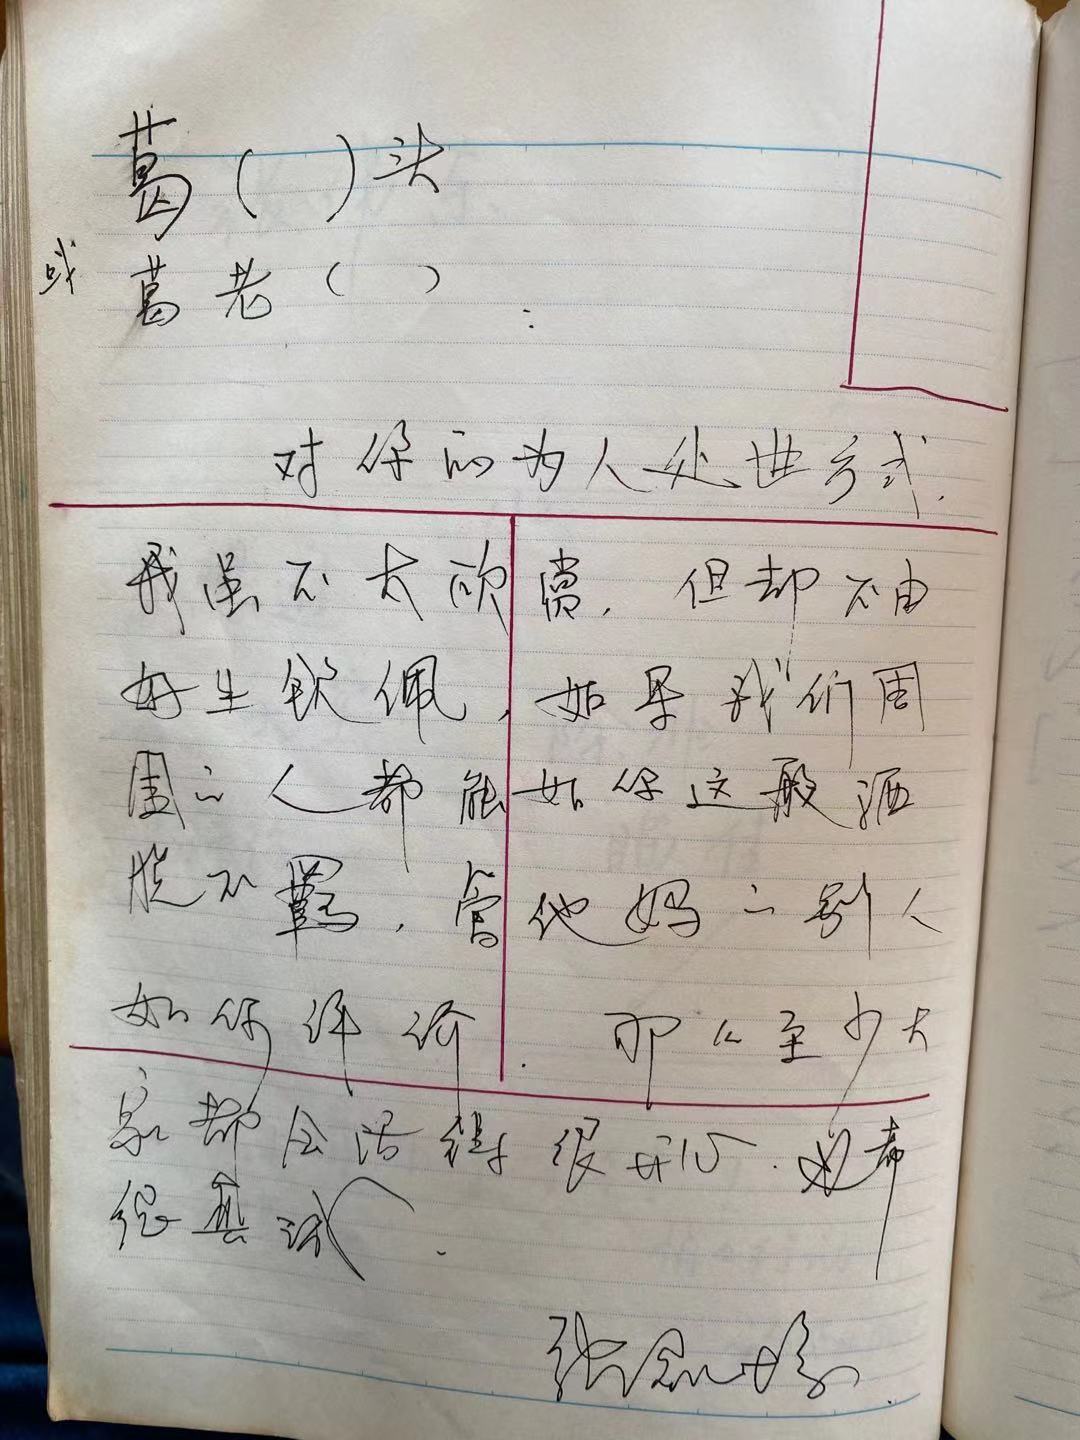 葛（ ）头
或
葛老（ ）：
对你的为人处世方式，
我虽不太欣赏，但却不由
好生钦佩，如果我们周
围的人都能如你这般洒
脱不羁，管他妈的别人
如何评价，那么至少大
家都会活得很开心，也都
很真诚。